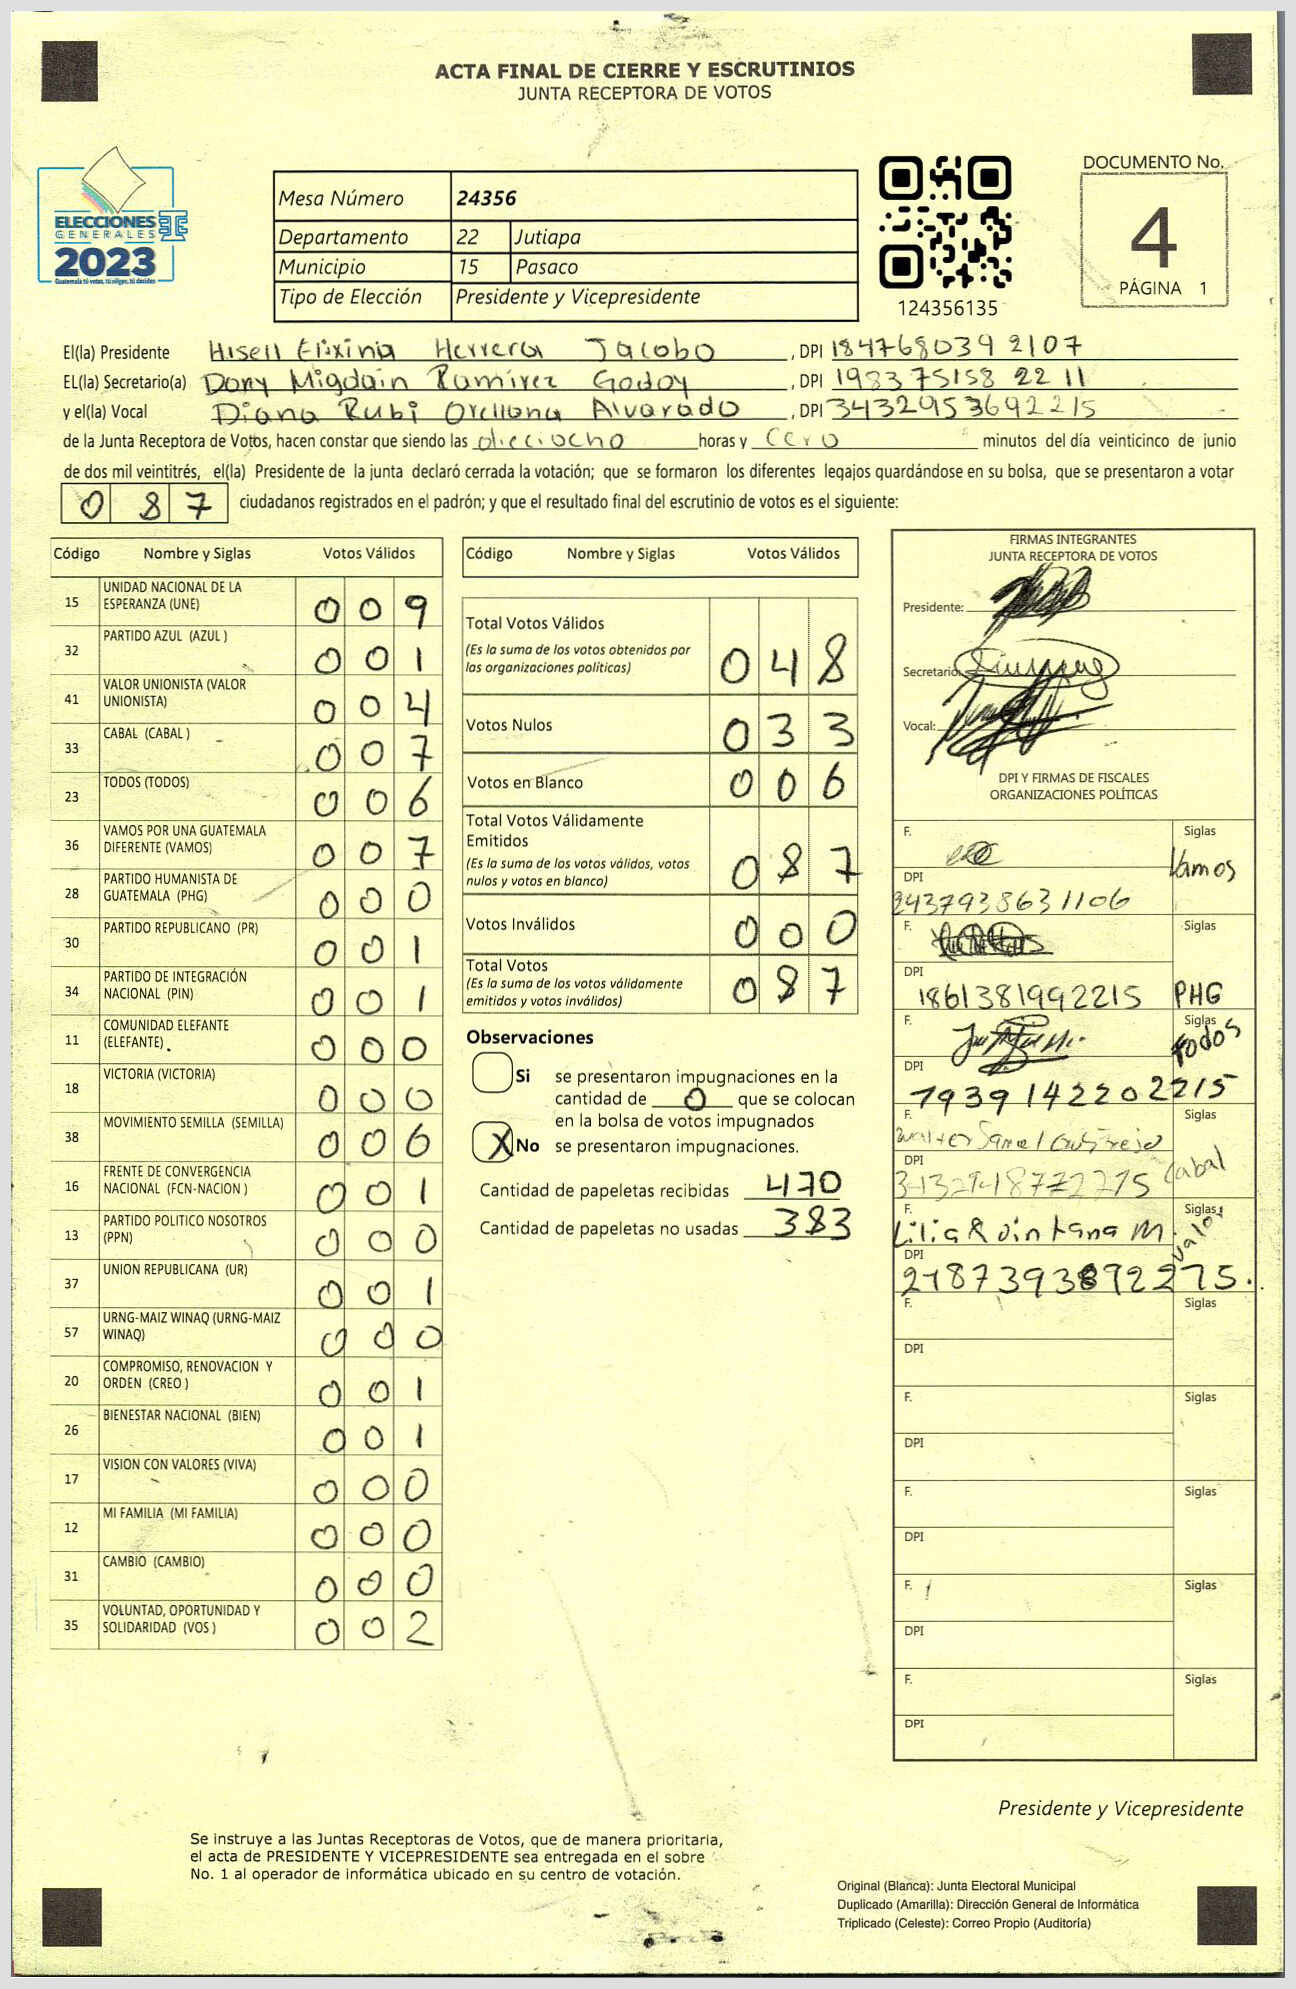 ACTA FINAL DE CIERRE Y ESCRUTINIOS
JUNTA RECEPTORA DE VOTOS
ELECCIONES
GENERALES
2023
Guatemala tú votas, tú eliges, tú decides
Mesa Número 24356
Departamento 22 Jutiapa
Municipio 15 Pasaco
Tipo de Elección Presidente y Vicepresidente
124356135
DOCUMENTO No.
4
PÁGINA 1
El(la) Presidente Hisell Elixinia Herrera Jacobo, DPI 184768039 2107
EL(la) Secretario(a) Dony Migdain Ramirez Godoy, DPI 198375158 22 11
y el(la) Vocal Diana Rubi Orellana Alvarado, DPI 3432953692215
de la Junta Receptora de Votos, hacen constar que siendo las dieciocho horas y cero minutos del día veinticinco de junio
de dos mil veintitrés, el(la) Presidente de la junta declaró cerrada la votación; que se formaron los diferentes legajos quardándose en su bolsa, que se presentaron a votar
0 8 7 ciudadanos registrados en el padrón; y que el resultado final del escrutinio de votos es el siguiente:
Código Nombre y Siglas Votos Válidos
15 UNIDAD NACIONAL DE LA ESPERANZA (UNE) 0 0 9
32 PARTIDO AZUL (AZUL ) 0 0 1
41 VALOR UNIONISTA (VALOR UNIONISTA) 0 0 4
33 CABAL (CABAL ) 0 0 7
23 TODOS (TODOS) 0 0 6
36 VAMOS POR UNA GUATEMALA DIFERENTE (VAMOS) 0 0 7
28 PARTIDO HUMANISTA DE GUATEMALA (PHG) 0 0 0
30 PARTIDO REPUBLICANO (PR) 0 0 1
34 PARTIDO DE INTEGRACIÓN NACIONAL (PIN) 0 0 1
11 COMUNIDAD ELEFANTE (ELEFANTE) 0 0 0
18 VICTORIA (VICTORIA) 0 0 0
38 MOVIMIENTO SEMILLA (SEMILLA) 0 0 6
16 FRENTE DE CONVERGENCIA NACIONAL (FCN-NACION ) 0 0 1
13 PARTIDO POLITICO NOSOTROS (PPN) 0 0 0
37 UNION REPUBLICANA (UR) 0 0 1
57 URNG-MAIZ WINAQ (URNG-MAIZ WINAQ) 0 0 0
20 COMPROMISO, RENOVACION Y ORDEN (CREO ) 0 0 1
26 BIENESTAR NACIONAL (BIEN) 0 0 1
17 VISION CON VALORES (VIVA) 0 0 0
12 MI FAMILIA (MI FAMILIA) 0 0 0
31 CAMBIO (CAMBIO) 0 0 0
35 VOLUNTAD, OPORTUNIDAD Y SOLIDARIDAD (VOS ) 0 0 2
Código Nombre y Siglas Votos Válidos
Total Votos Válidos 0 4 8
(Es la suma de los votos obtenidos por
las organizaciones políticas)
Votos Nulos 0 3 3
Votos en Blanco 0 0 6
Total Votos Válidamente
Emitidos 0 8 7
(Es la suma de los votos válidos, votos
nulos y votos en blanco)
Votos Inválidos 0 0 0
Total Votos 0 8 7
(Es la suma de los votos válidamente
emitidos y votos inválidos)
Observaciones
Si se presentaron impugnaciones en la
cantidad de 0 que se colocan
en la bolsa de votos impugnados
X No se presentaron impugnaciones.
Cantidad de papeletas recibidas 470
Cantidad de papeletas no usadas 383
FIRMAS INTEGRANTES
JUNTA RECEPTORA DE VOTOS
Presidente:
Secretario:
Vocal:
DPI Y FIRMAS DE FISCALES
ORGANIZACIONES POLÍTICAS
F. Siglas
Vamos
DPI
2437938631106
F. Siglas
DPI
1861381992215 PHG
F. Siglas
Todos
DPI
1939142202215
F. Siglas
DPI
Cabal
F. Siglas
Lilia Quintana M. Valor
DPI
2187393892215.
F. Siglas
DPI
F. Siglas
DPI
F. Siglas
DPI
F. Siglas
DPI
F. Siglas
DPI
Presidente y Vicepresidente
Se instruye a las Juntas Receptoras de Votos, que de manera prioritaria,
el acta de PRESIDENTE Y VICEPRESIDENTE sea entregada en el sobre
No. 1 al operador de informática ubicado en su centro de votación.
Original (Blanca): Junta Electoral Municipal
Duplicado (Amarilla): Dirección General de Informática
Triplicado (Celeste): Correo Propio (Auditoría)